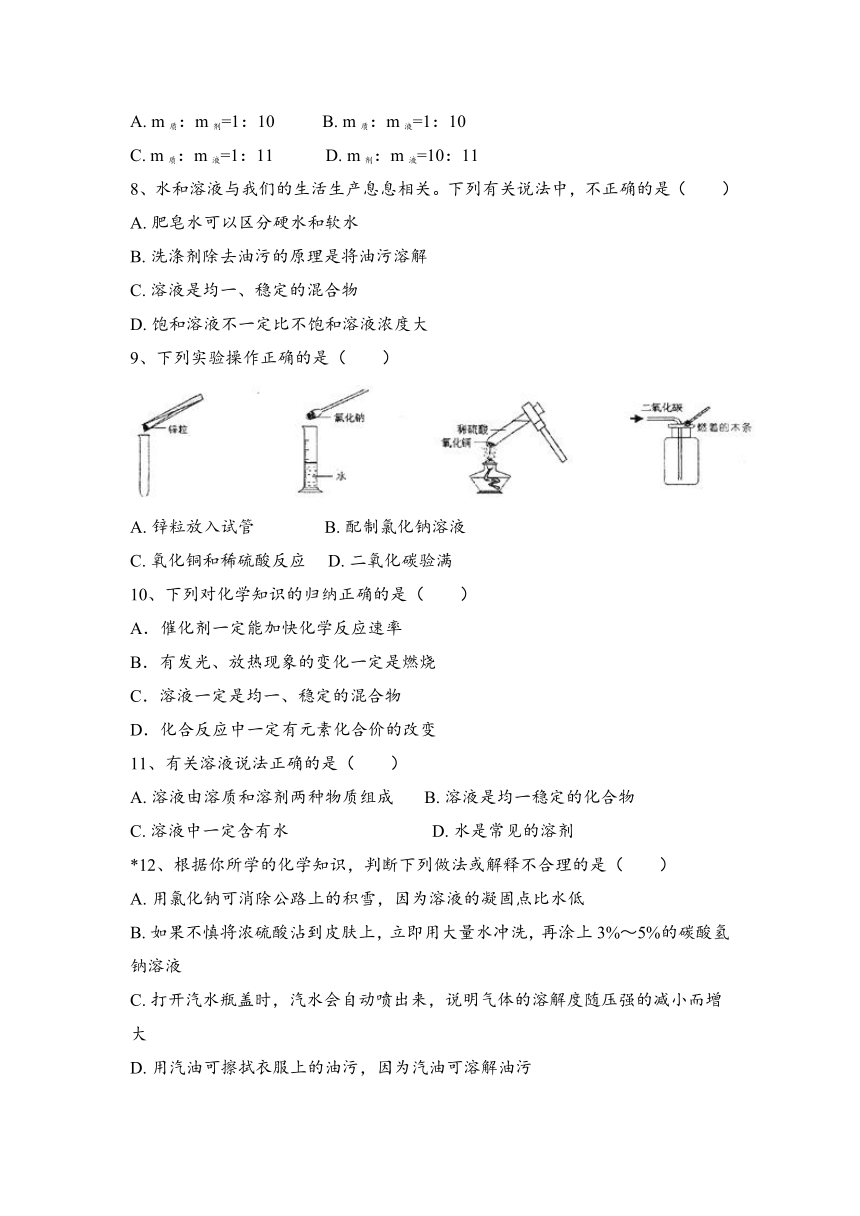 A. m 质：m 剂=1：10 B. m 质：m 液=1：10
C. m 质：m 液=1：11 D. m 剂：m 液=10：11
8、水和溶液与我们的生活生产息息相关。下列有关说法中，不正确的是（ ）
A. 肥皂水可以区分硬水和软水
B. 洗涤剂除去油污的原理是将油污溶解
C. 溶液是均一、稳定的混合物
D. 饱和溶液不一定比不饱和溶液浓度大
9、下列实验操作正确的是（ ）
锌粒
氯化钠
水
稀硫酸
氧化铜
二氧化碳
燃着的木条
A. 锌粒放入试管 B. 配制氯化钠溶液
C. 氧化铜和稀硫酸反应 D. 二氧化碳验满
10、下列对化学知识的归纳正确的是（ ）
A．催化剂一定能加快化学反应速率
B．有发光、放热现象的变化一定是燃烧
C．溶液一定是均一、稳定的混合物
D．化合反应中一定有元素化合价的改变
11、有关溶液说法正确的是（ ）
A. 溶液由溶质和溶剂两种物质组成 B. 溶液是均一稳定的化合物
C. 溶液中一定含有水 D. 水是常见的溶剂
*12、根据你所学的化学知识，判断下列做法或解释不合理的是（ ）
A. 用氯化钠可消除公路上的积雪，因为溶液的凝固点比水低
B. 如果不慎将浓硫酸沾到皮肤上，立即用大量水冲洗，再涂上 3%～5%的碳酸氢
钠溶液
C. 打开汽水瓶盖时，汽水会自动喷出来，说明气体的溶解度随压强的减小而增
大
D. 用汽油可擦拭衣服上的油污，因为汽油可溶解油污